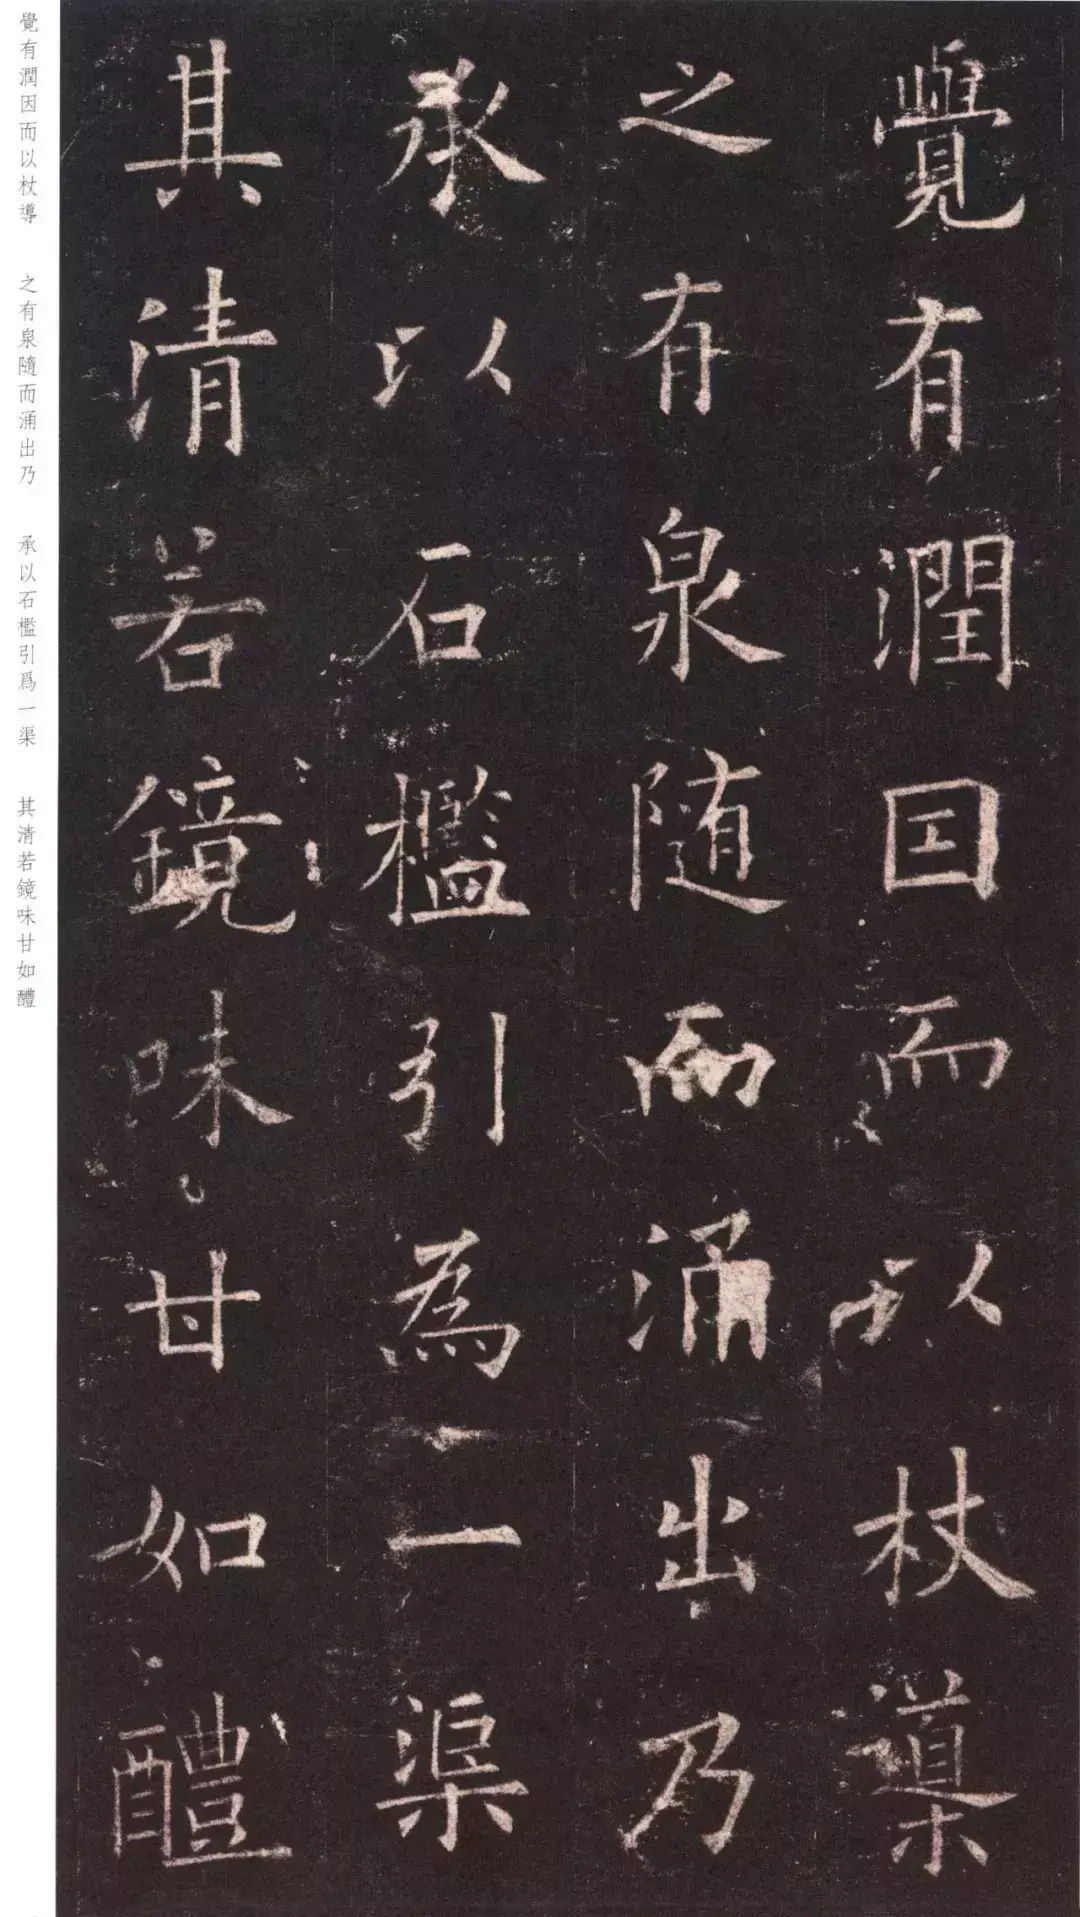 覺有潤因而以杖導
之有泉隨而涌出乃
承以石檻引為一渠
其清若鏡味甘如醴
覺有潤因而以杖導 之有泉隨而涌出乃 承以石檻引爲一渠 其清若鏡味甘如醴